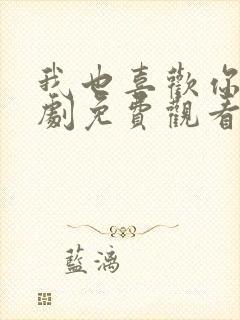 我也喜歡你
劇免費觀看
藍漓